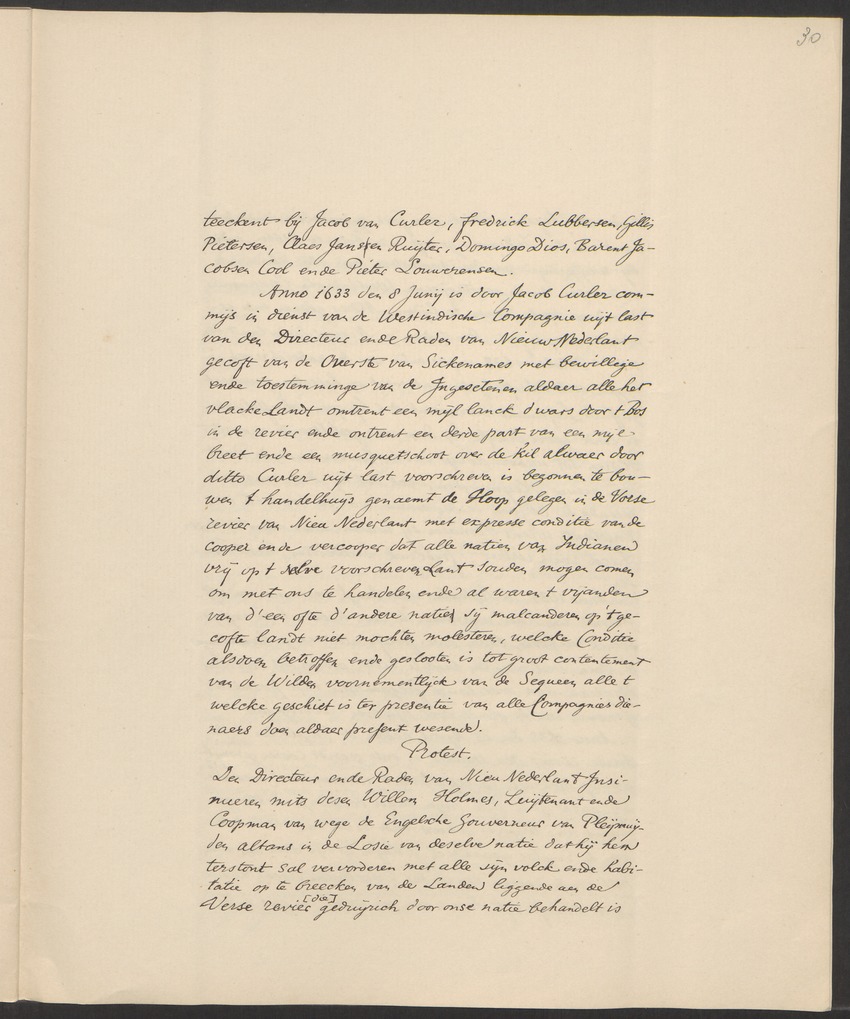 30
teeckent bij Jacob van Curler, fredrick Lubbersen, Gillis
Pietersen, Claes Janssen Ruijter, Domingo Dios, Barent Ja-
cobsen Cool ende Pieter Louwerensen.
Anno 1633 den 8 Junij is door Jacob Curler com-
mijs in dienst van de Westindische Compagnie uijt last
van den Directeur ende Raden van Nieuw Nederlant
gecoft van de Overste van Sickenames met bewillige
ende toestemminge van de Ingesetenen aldaer alle het
vlacke Landt omtrent een mijl lanck dwars door t Bos
in de revier ende ontrent een derde part van een mije
breet ende een musquetschoot over de kil alwaer door
ditto Curler uijt last voorschreven is begonnen te bou-
wen t handelhuijs genaemt de Hoop gelegen in de Verse
revier van Nieu Nederlant met expresse conditie van de
cooper ende vercooper dat alle natien van Indianen
vrij op t selve voorschreven Lant souden mogen comen
om met ons te handelen ende al waren t vijanden
van d'een ofte d'andere natien sij malcanderen op 't ge-
cofte landt niet mochten molesteren, welcke Conditie
alsdoen betroffen ende geslooten is tot groot contentement
van de Wilden voornementlijck van de Sequeen alle t
welcke geschiet is ter presentie van alle Compagnies die-
naers doen aldaer present wesende.
Protest.
Den Directeur ende Raden van Nieu Nederlant Insi-
nueren mits desen Willem Holmes, Luijtenant ende
Coopman van wege de Engelsche Gouverneur van Pleijmuij-
den altans in de Losie van deselve natie dat hij hem
terstont sal vervorderen met alle sijn volck ende habi-
tatie op te breecken van de Landen liggende aen de
Verse revier [die] geduijrich door onse natie behandelt is